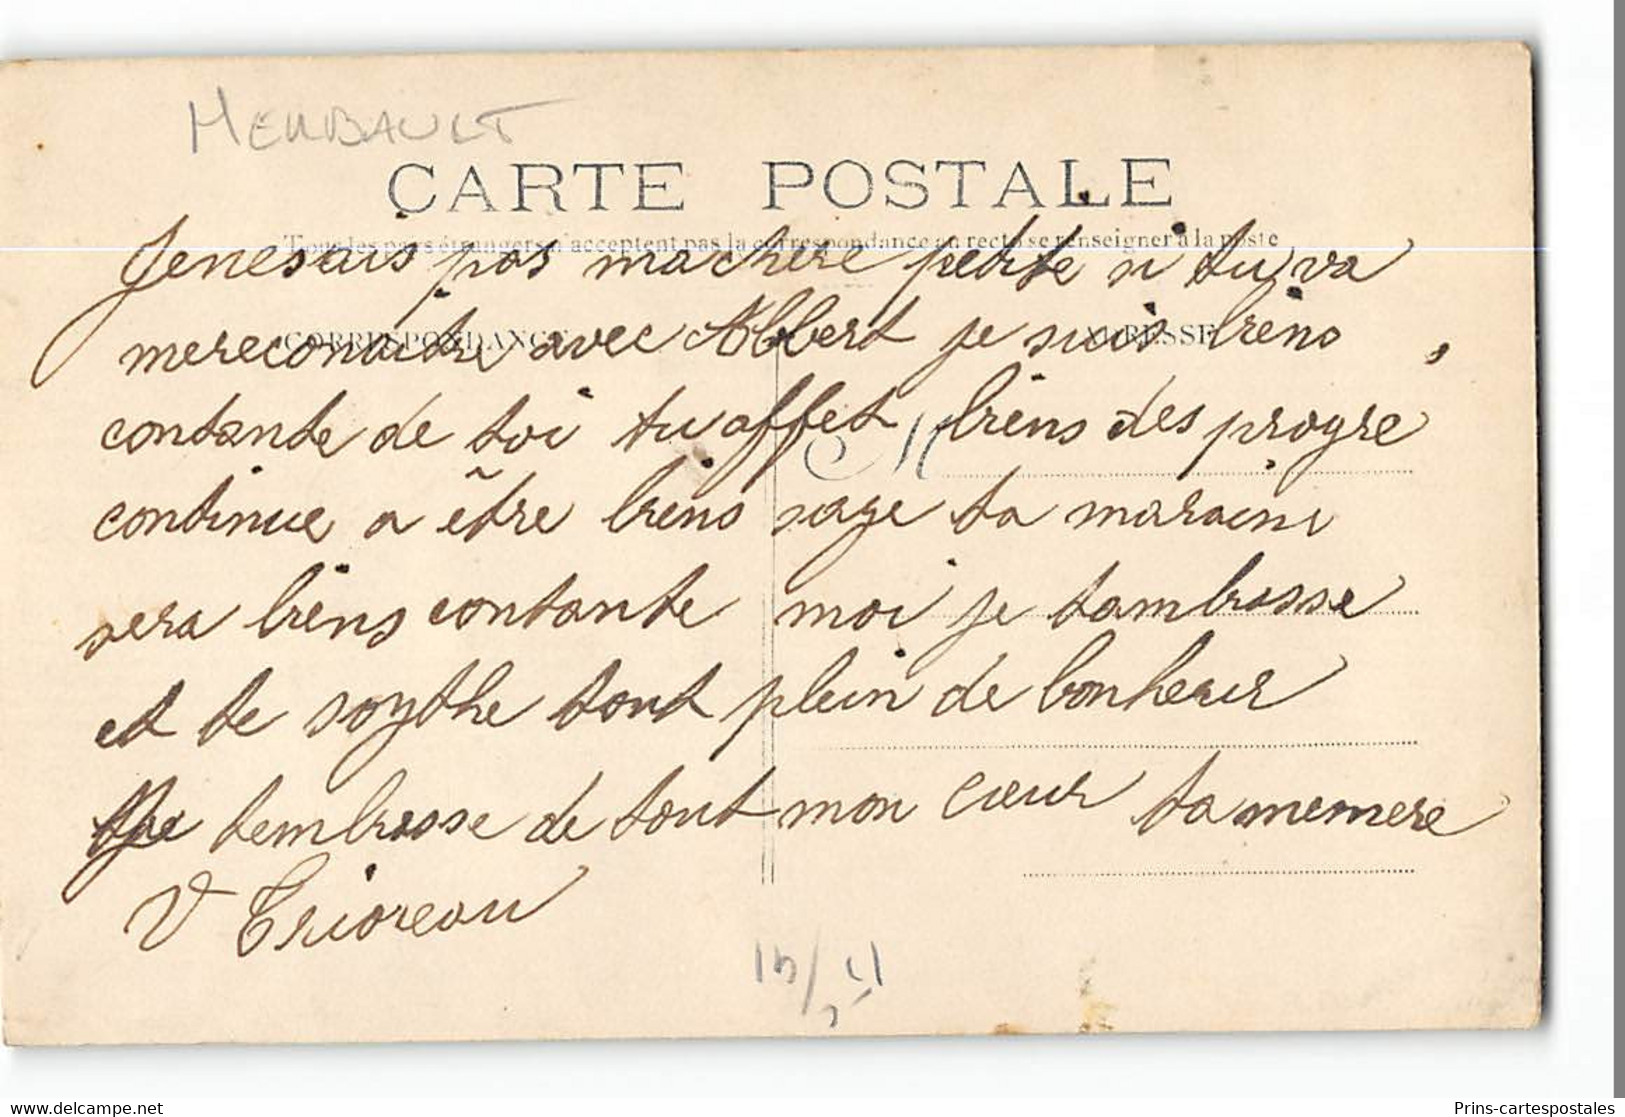 MEMBAULT
CARTE POSTALE
Tous les pays étrangers n'acceptent pas la correspondance au recto se renseigner à la poste
Jenesais pas machere petite si tu va
CORRESPONDANCE
ADRESSE
mereconaitre avec Albert je suis biens
contante de toi tu affet biens des progre
M
continue a être biens sage ta maraine
sera biens contante moi je tambrasse
et te soythe tout plein de bonheur
Je tembrasse de tout mon cœur ta memere
V Trioreau
Prins-cartespostales.com
Prins-cartespostales